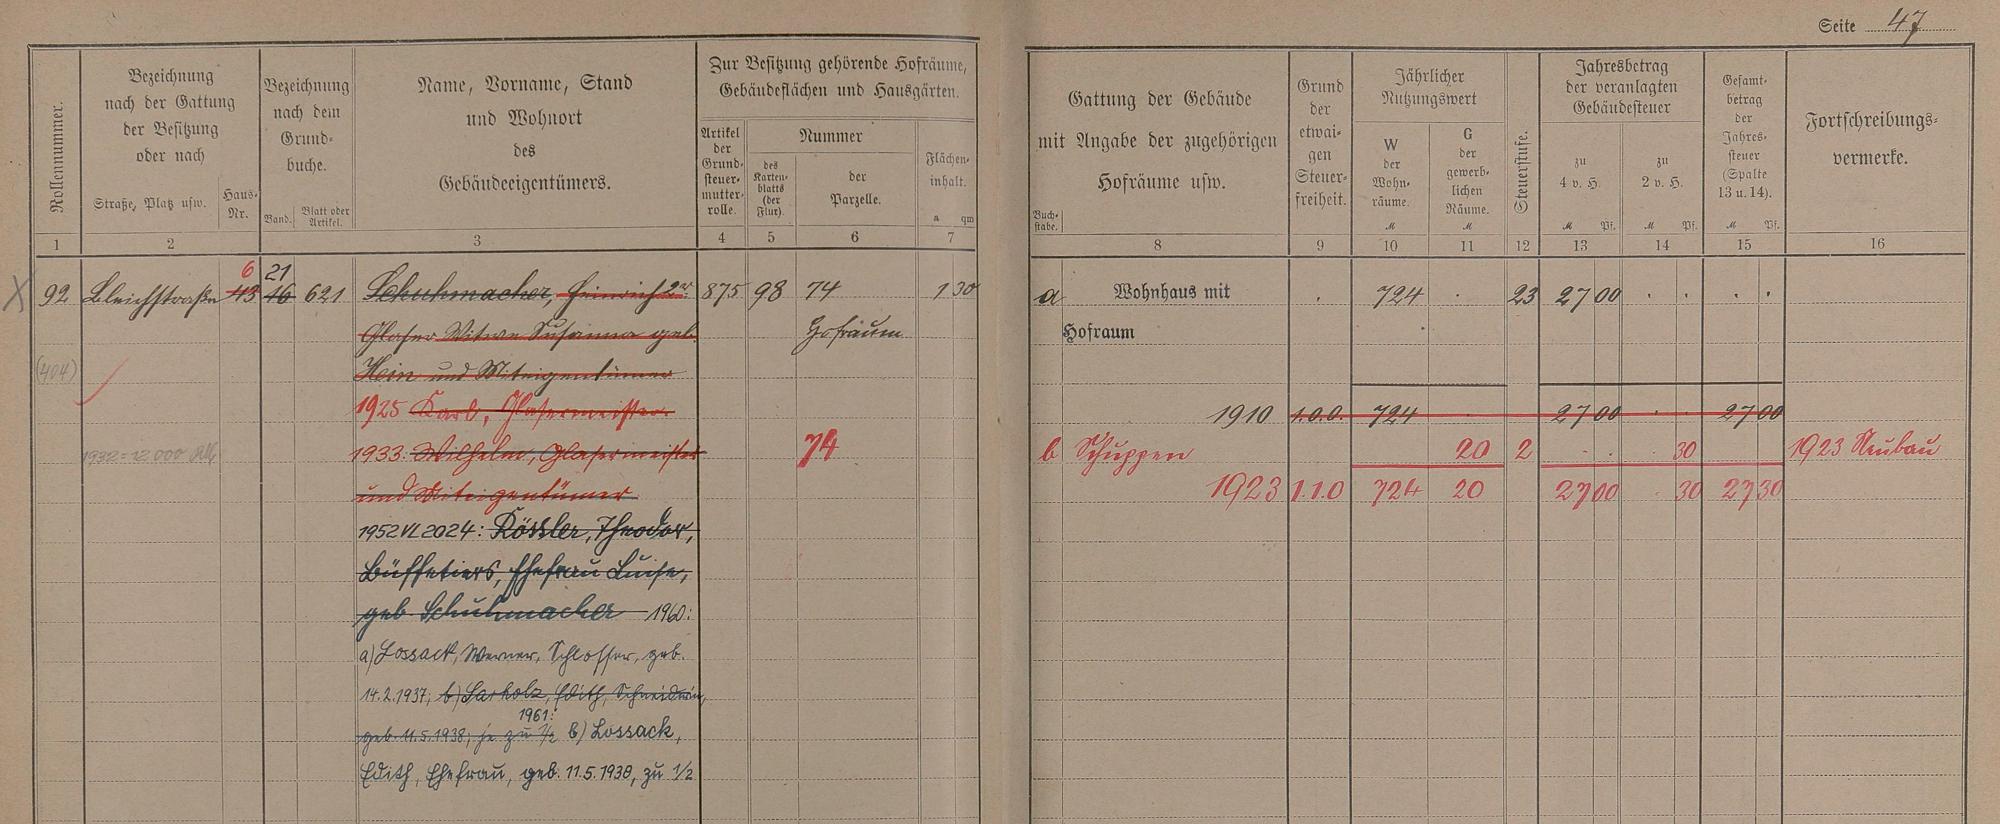 Seite 47
Rollennummer.
Bezeichnung
nach der Gattung
der Besitzung
oder nach
Straße, Platz usw.
Haus-
Nr.
Bezeichnung
nach dem
Grund-
buche.
Band.
Blatt oder
Artikel.
Name, Vorname, Stand
und Wohnort
des
Gebäudeeigentümers.
Zur Besitzung gehörende Hofräume,
Gebäudeflächen und Hausgärten.
Artikel
der
Grund-
steuer-
mutter-
rolle.
Nummer
des
Karten-
blatts
(der
Flur).
der
Parzelle.
Flächen-
inhalt.
a qm
Gattung der Gebäude
mit Angabe der zugehörigen
Hofräume usw.
Buch-
stabe.
Grund
der
etwai-
gen
Steuer-
freiheit.
Jährlicher
Nutzungswert
W
der
Wohn-
räume.
M
G
der
gewerb-
lichen
Räume.
M
Steuerstufe.
Jahresbetrag
der veranlagten
Gebäudesteuer
zu
4 v. H.
M Pf.
zu
2 v. H.
M Pf.
Gesamt-
betrag
der
Jahres-
steuer
(Spalte
13 u. 14).
M Pf.
Fortschreibungs-
vermerke.
1 2 3 4 5 6 7 8 9 10 11 12 13 14 15 16
6 21
92 Bleichstraße 43 16 621 Schuhmacher, Heinrich 2r 875 98 74 1 30 a Wohnhaus mit . 724 . 23 27 00 . . . .
Glaser Witwe Susanna geb. Hofraum Hofraum
(404) Hein und Miteigentümer
1925 Karl, Glasermeister. 1910 1.0.0. 724 . 27 00 . . 27 00
1932 = 12 000 RM 1933. Wilhelm, Glasermeister 74 b Schuppen 20 2 . . 30 1923 Neubau
und Miteigentümer 1923 1.1.0 724 20 27 00 . 30 27 30
1952 VL 2024: Rössler, Theodor,
Büffetiers, Ehefrau Luise,
geb. Schuhmacher 1960:
a) Lossack, Werner, Schlosser, geb.
14.2.1937; b) Sarholz, Edith, Schneiderin,
1961:
geb. 11.5.1938; je zu 1/2 b) Lossack,
Edith, Ehefrau, geb. 11.5.1938, zu 1/2